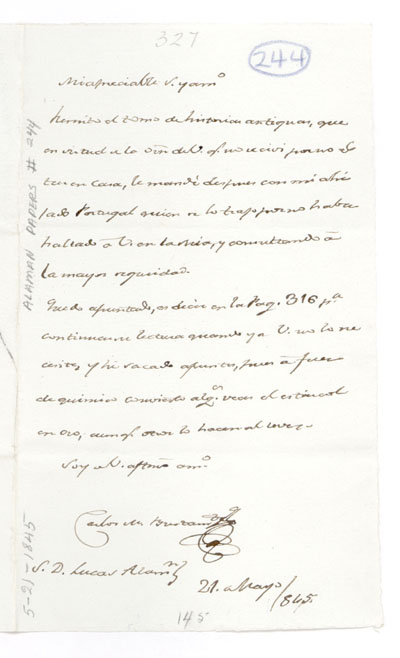 327
244
Mi apreciable S. y amº
Remito el tomo de historias antiguas, que
en virtud de la orn de V. qe no recivi por no es
tar en Casa, le mandé despues con mi ahi
jado Portugal quien me lo trajo por no haber
hallado á V. en la suia, y consultando á
la mayor seguridad.
Quedo apuntado, es decir en la Pag. 316 pa
continuar su lectura quando ya V. no lo ne
cesite, y hé sacado apuntes, pues á fuer
de quimico convierto algs veces el estiercol
en oro, aunqe otros lo hacen al reves.
Soy de V. aftmo amº
Carlos Ma Bustamte
S. D. Lucas Alamn
21. de Mayo/845.
145
ALAMAN PAPERS # 244
5-21-1845